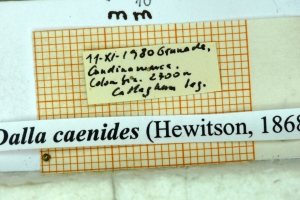 10
mm
11-XI-1980 Granada,
Cundinamarca.
Colombia. 2700m
Callaghan leg.
Dalla caenides (Hewitson, 1868